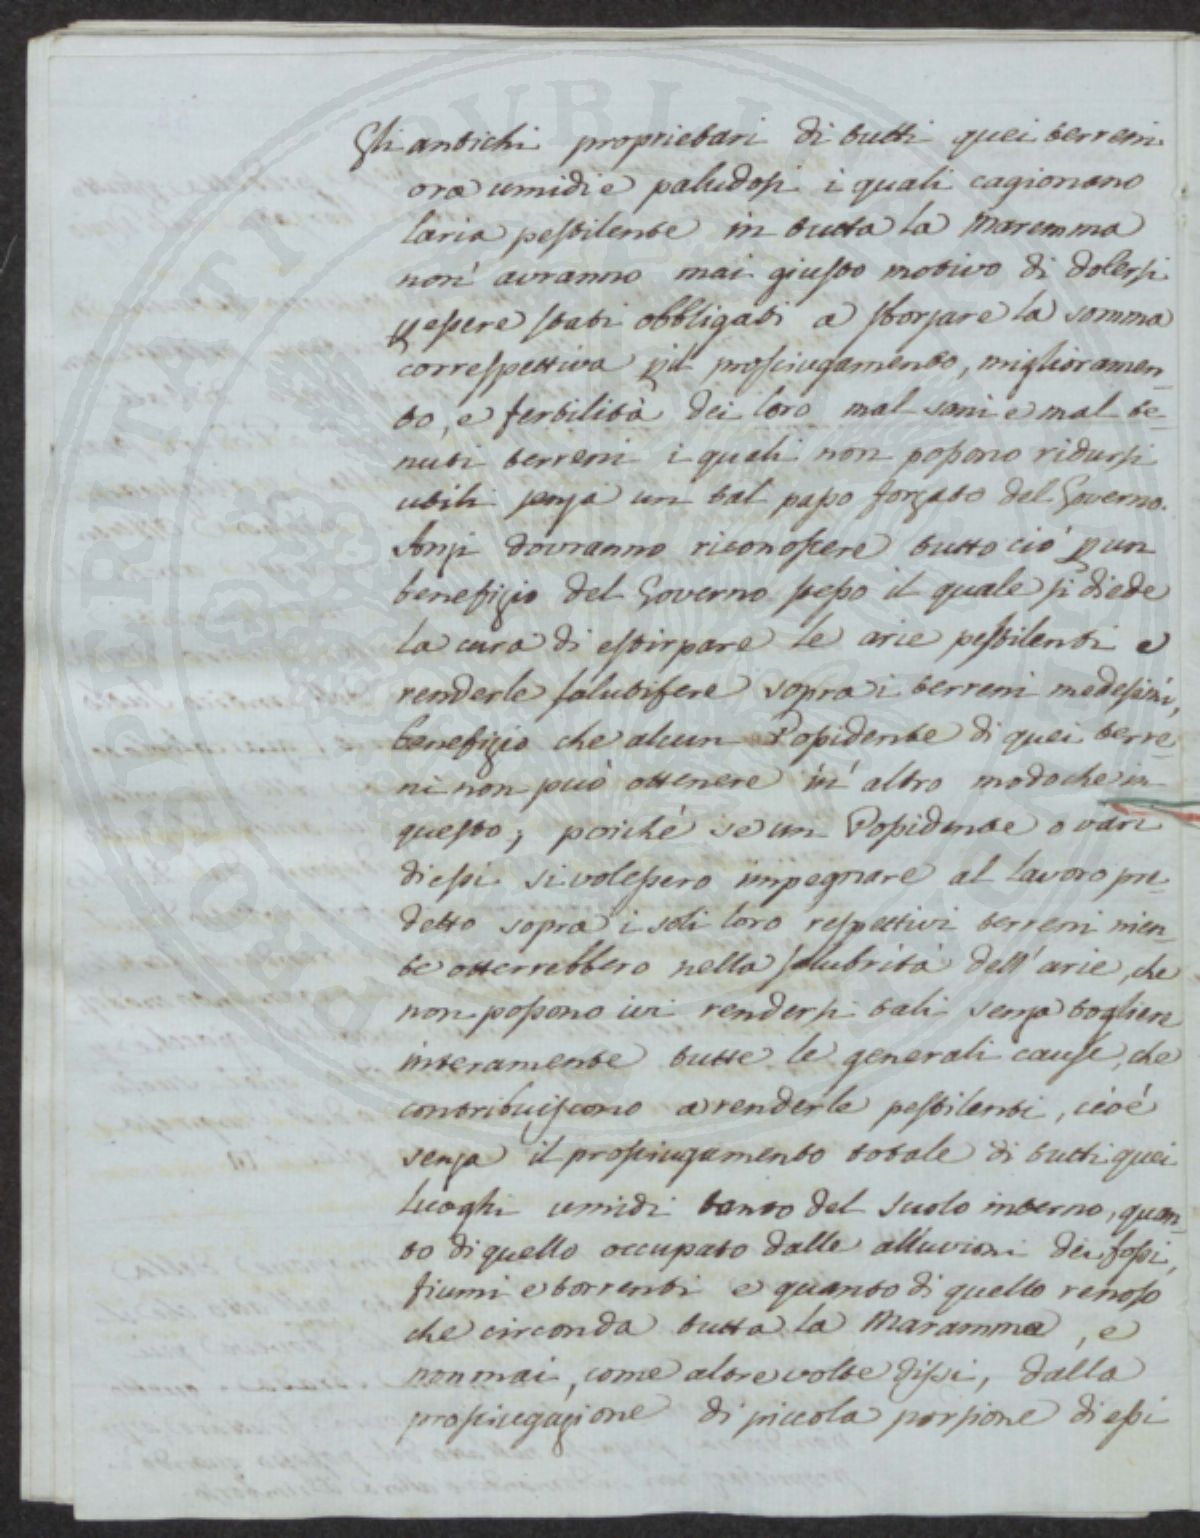 Gli antichi proprietari di tutti quei terreni
ora umidi e paludosi i quali cagionano
laria pestilente in tutta la Maremma
non avranno mai giusto motivo di dolersi
p essere stati obbligati a sborsare la somma
correspettiva pil prosciugamento, miglioramen-
to, e fertilità dei loro mal sani e mal te-
nuti terreni i quali non possono ridursi
utili senza un tal passo forzato del Governo.
Anzi dovranno riconoscere tutto ciò p un
benefizio del Governo stesso il quale si diede
la cura di estirpare le arie pestilenti e
renderle salutifere sopra i terreni medesimi,
benefizio che alcun Possidente di quei terre-
ni non può ottenere in altro modo che in
questo; poiché se un Possidente o varj
di essi si volessero impegnare al lavoro pre-
detto sopra i soli loro respettivi terreni nien-
te otterrebbero nella salubrità dell'arie, che
non possono ivi rendersi tali senza togliere
interamente tutte le generali cause, che
contribuiscono a renderle pestilenti, cioè
senza il prosciugamento totale di tutti quei
luoghi umidi tanto del suolo interno, quan-
to di quello occupato dalle alluvioni dei fossi,
fiumi e torrenti e quanto di quello renoso
che circonda tutta la Maramma, e
non mai, come altre volte dissi, dalla
prosciugazione di piccola porzione di essi
PROSPERITATI PUBLICAE